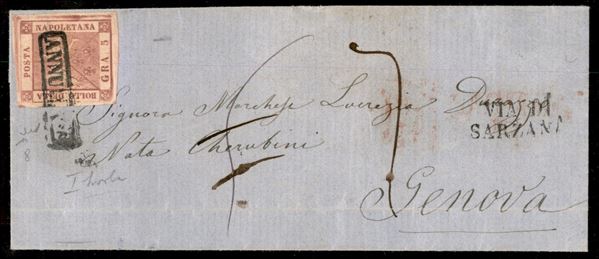 POSTA
NAPOLETANA
GRA 5
BOLLO DELLA
ANNU
VIA DI
SARZANA
Signora Marchese Lucrezia D
Nata Cherubini
Genova